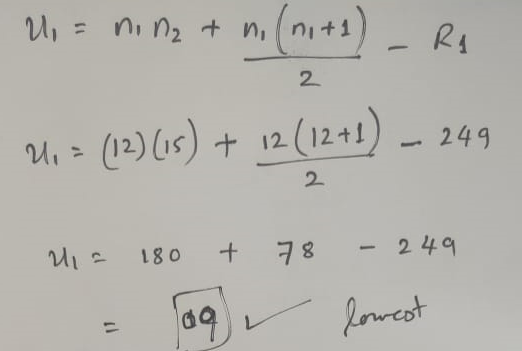 U₁ = n₁ n₂ + n₁(n₁+1)/2 - R₁
U₁ = (12)(15) + 12(12+1)/2 - 249
U₁ = 180 + 78 - 249
= 09 ✓ lowest